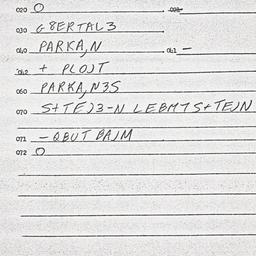 020 O
030 G8ERTAL3
040 PARKA,N 041 -
042 + PLOJT
060 PARKA,N3S
070 S+TE)3-N LEBM7S+TE)N
071 -QBUT BAJM
072 O